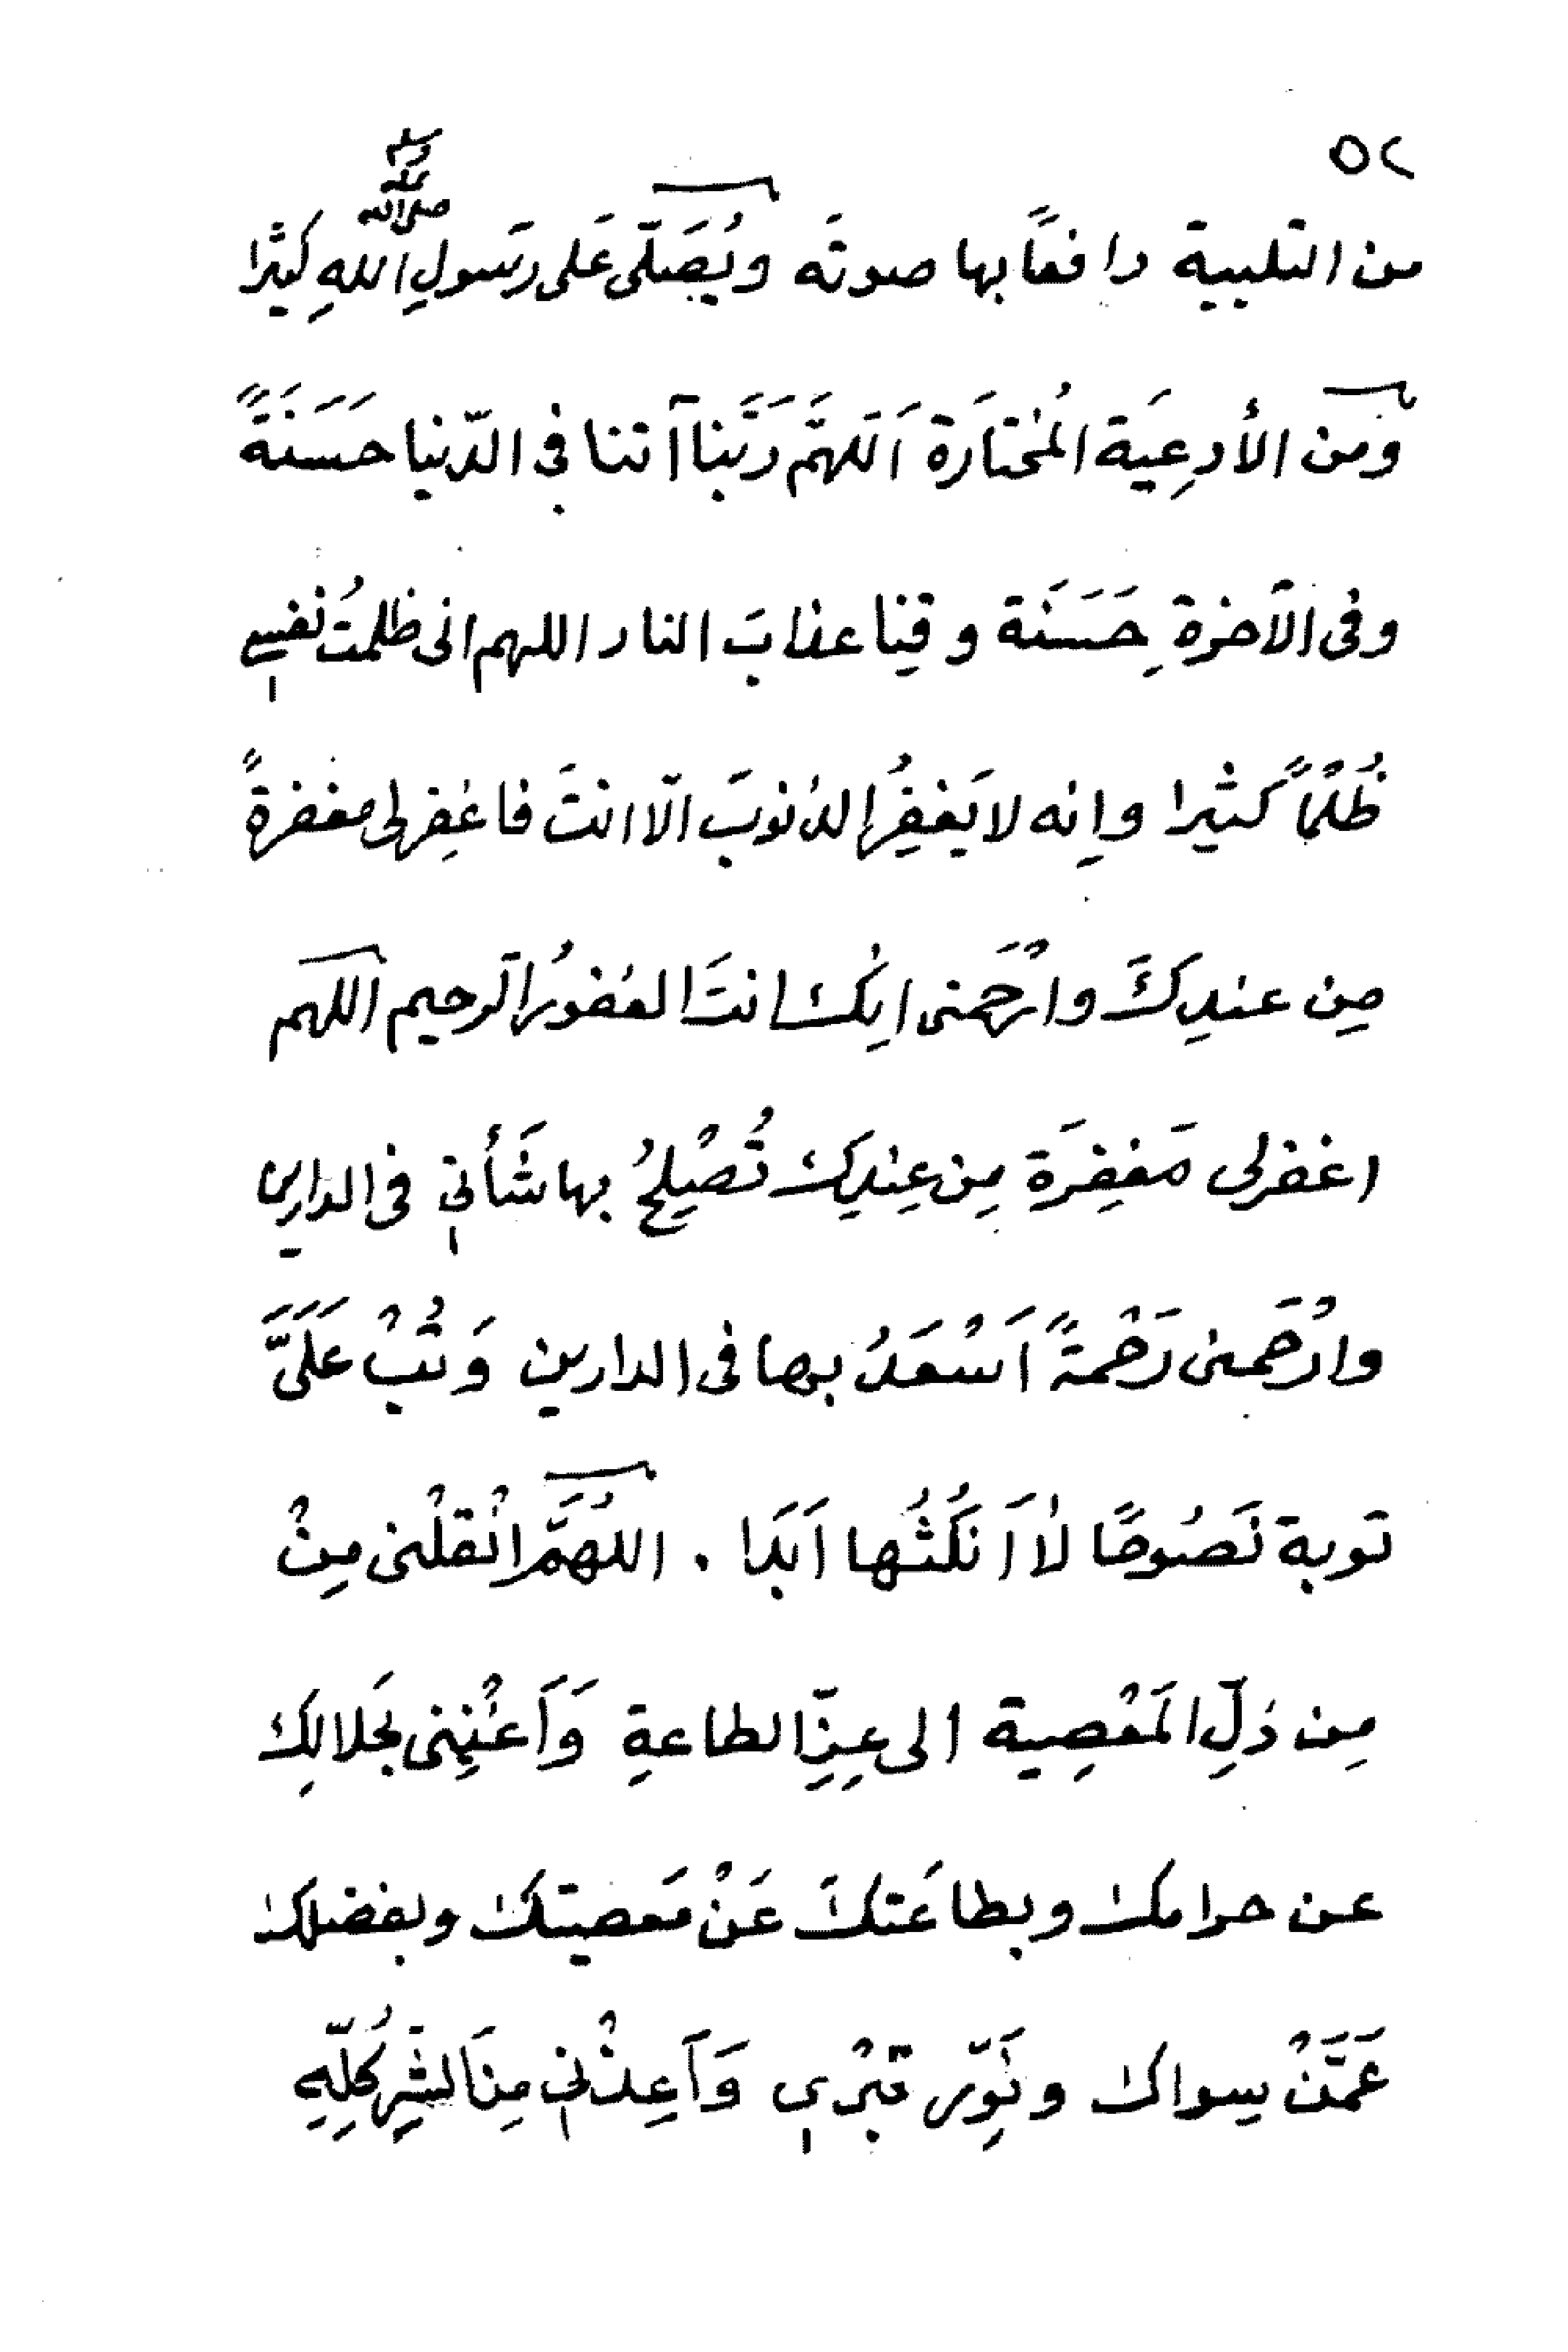 ٥٢
من التلبية رافعًا بها صوتَه ويُصَلّى عَلى رَسولِ اللهِ صلى الله عليه وسلم كثيرًا
ومن الأدعِيَة المُختارَة اَللهمَّ رَبَّنا آتنا فى الدّنيا حَسَنَةً
وفى الآخرةِ حَسَنَة وقِنا عذابَ النار اللهم انى ظلمتُ نفسِي
ظُلْمًا كثيرا وإنه لا يَغفِرُ الذنوبَ الّا انتَ فاغفِر لى مغفرةً
مِن عندِكَ وارْحَمنى إنك انتَ الغفورُ الرحيم اللهم
اغفرلى مَغفِرَة مِن عِندِكَ تُصْلِحُ بها شَأني فى الدارين
وارْحَمنى رَحْمةً اَسْعَدُ بها فى الدارين وَتُبْ عَلَىَّ
توبة نَصُوحًا لا اَنكُثُها اَبَدَا . اللهُمَّ انْقلْنى مِنْ
مِن ذلِّ المَعْصِية الى عِزِّ الطاعةِ وَاَغْنِنى بحَلالِك
عن حرامك وبطاعَتكَ عَنْ مَعصيتك وبفضلك
عَمَّنْ سِواك ونَوِّر قَبْرِي وَاَعِذْنِي مِنَ الشرِّ كُلِّهِ